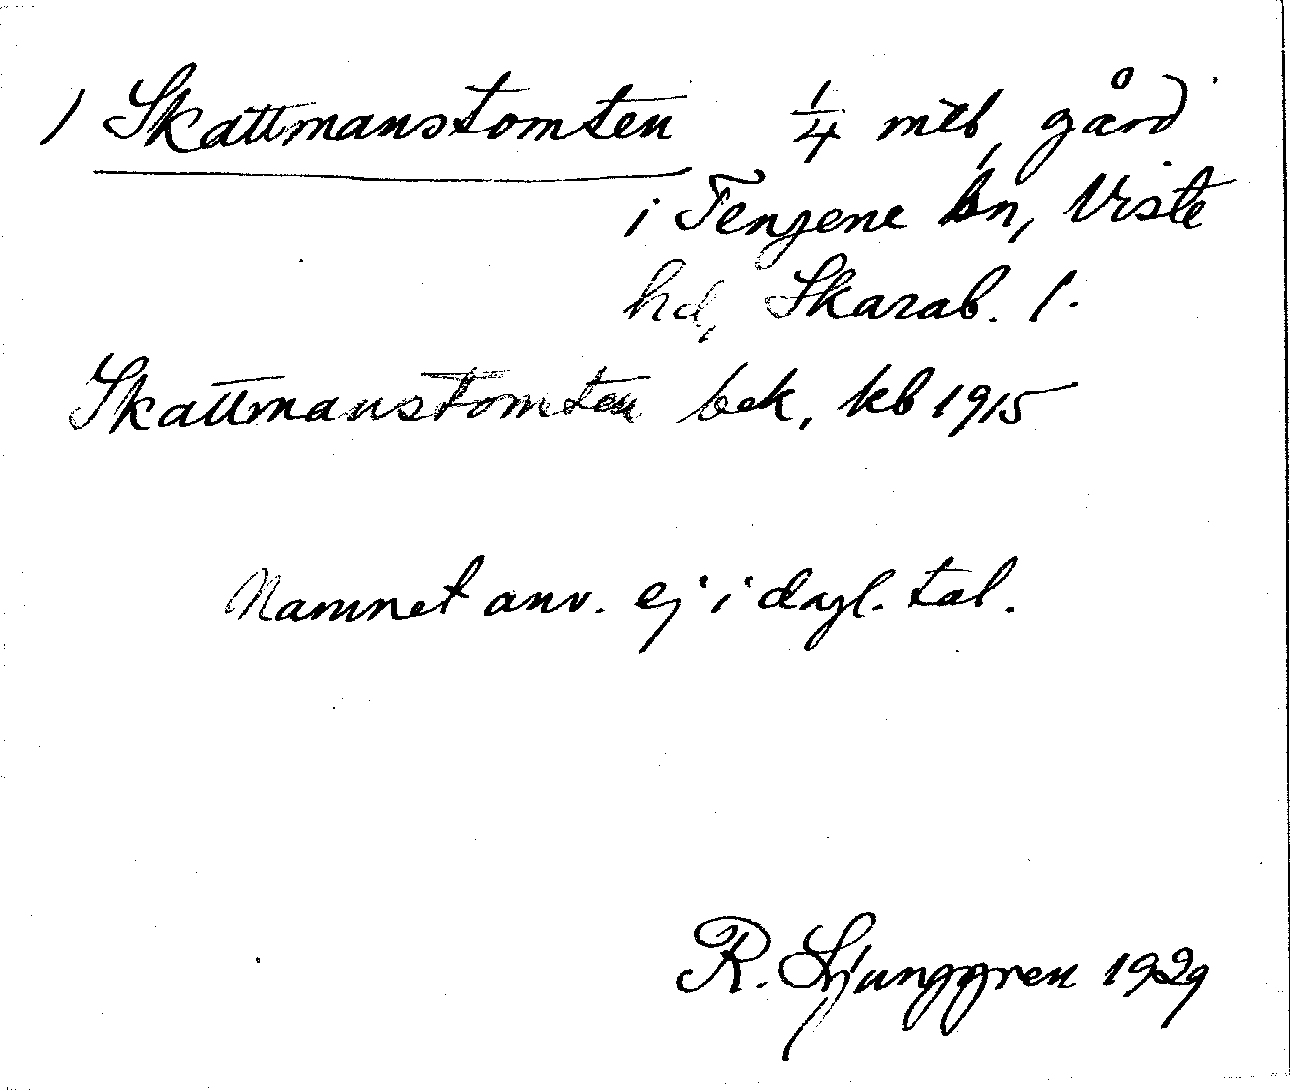 / Skattmanstomten 1/4 mtl, gård
i Tengene sn, Viste
hd, Skarab. l.
Skattmanstomten bek, kb 1915
Namnet anv. ej i dagl. tal.
R. Ljunggren 1929